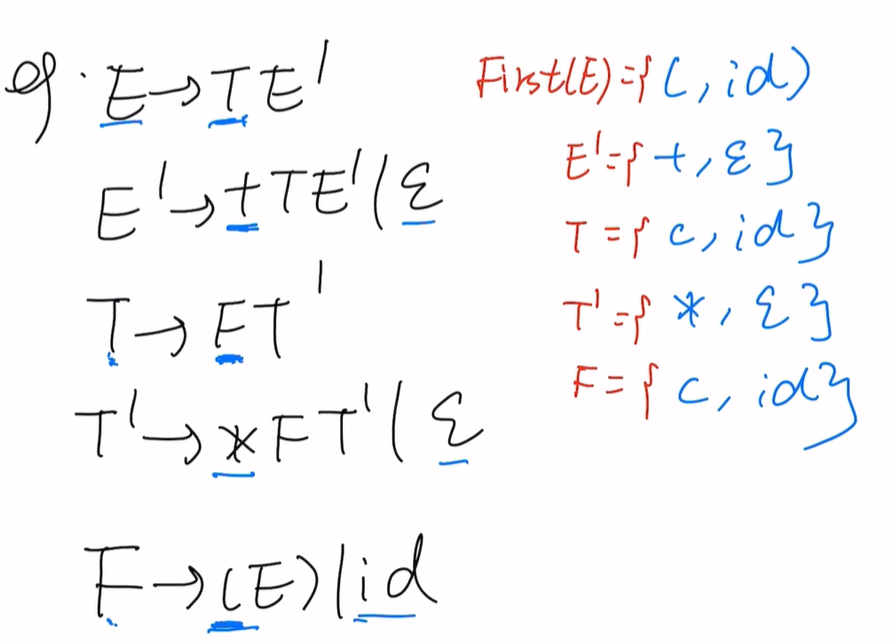 eg. E → TE'
E' → +TE' | ε
T → FT'
T' → *FT' | ε
F → (E) | id
First(E) = { (, id)
E' = { +, ε }
T = { (, id }
T' = { *, ε }
F = { (, id }